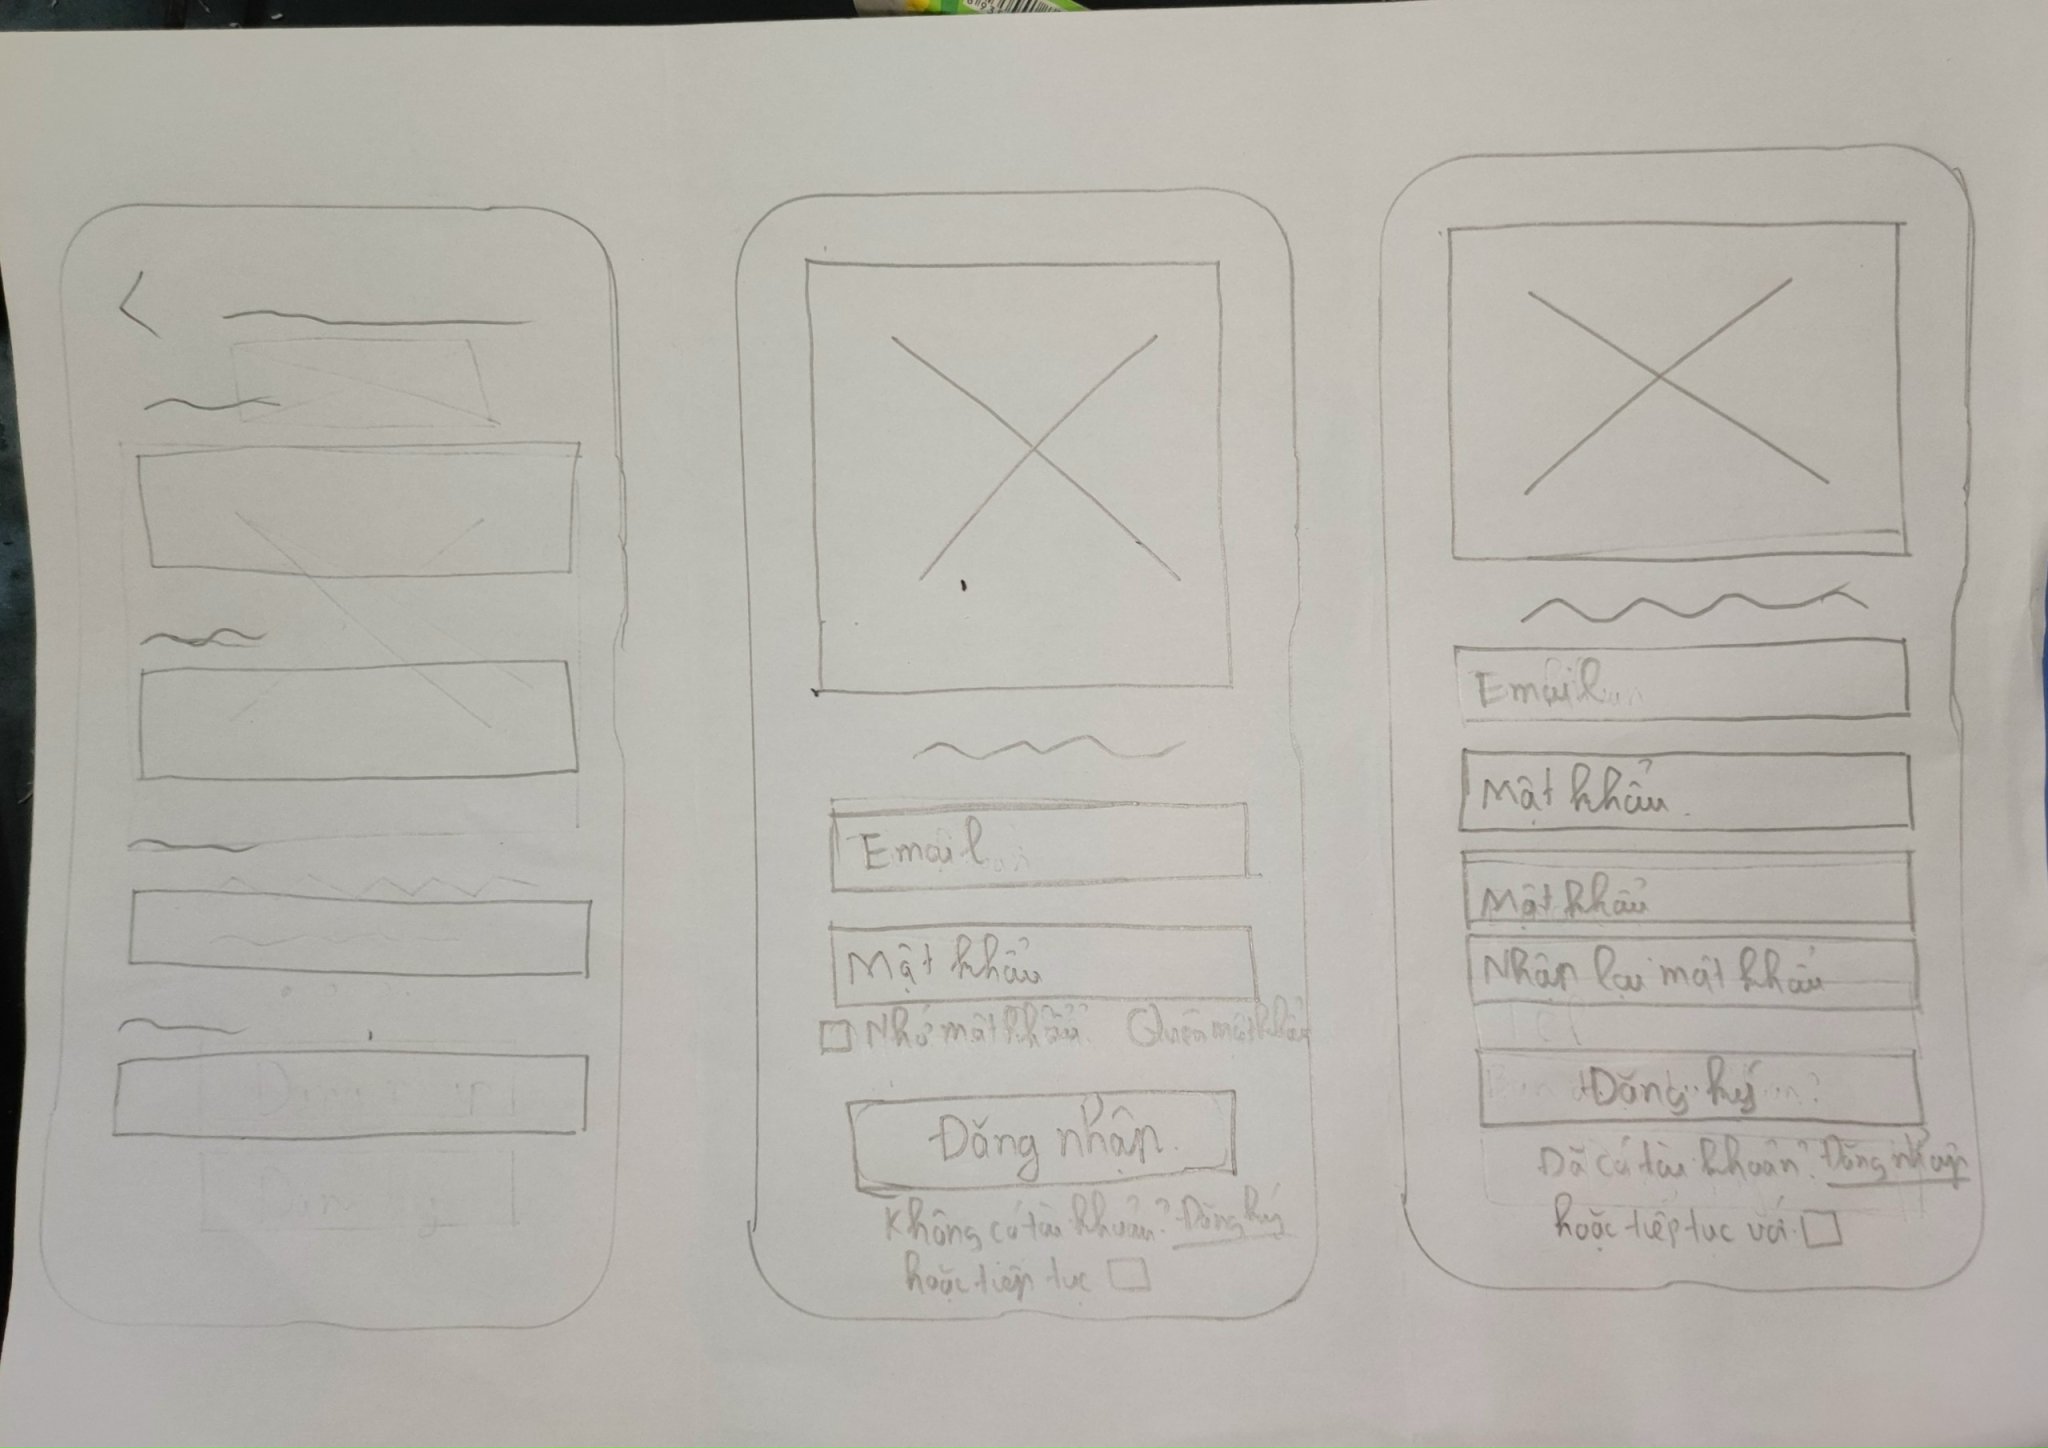 Email
Mật khẩu
Nhớ mật khẩu Quên mật khẩu
Đăng nhập
Không có tài khoản? Đăng ký
hoặc tiếp tục
Email
Mật khẩu
Mật khẩu
Nhập lại mật khẩu
Đăng ký
Đã có tài khoản? Đăng nhập
hoặc tiếp tục với